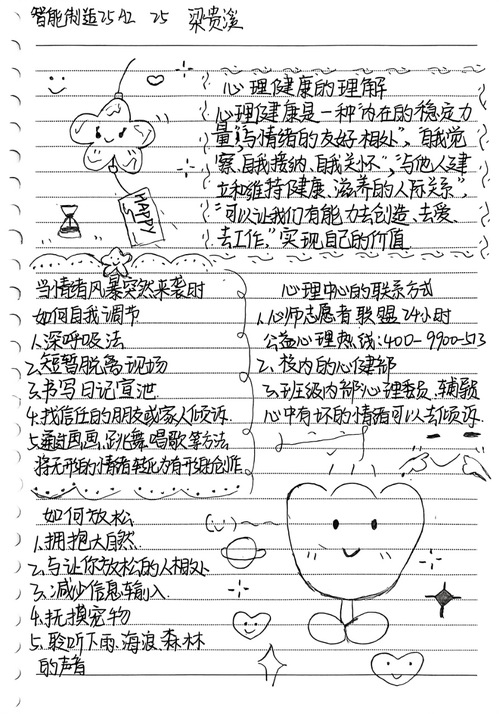 智能制造25A2 25 梁贵溪
心理健康的理解
心理健康是一种"内在的稳定力
量,"与情绪的友好相处","自我觉
察、自我接纳、自我关怀","与他人建
立和维持健康、滋养的人际关系",
"可以让我们有能力去创造、去爱、
去工作,"实现自己的价值
HAPPY
当情绪风暴突然来袭时
如何自我调节
1.深呼吸法
2.短暂脱离现场
3.书写日记宣泄
4.找信任的朋友或家人倾诉
5.通过画画、跳舞、唱歌等方法
将无形的情绪转化为有形的创作
心理中心的联系方式
1.心师志愿者联盟24小时
公益心理热线:400-9900-513
2.校内的心健部
3.班级内部心理委员、辅导员
心中有坏的情绪可以去倾诉
如何放松
1.拥抱大自然
2.与让你放松的人相处
3.减少信息输入
4.抚摸宠物
5.聆听下雨、海浪、森林
的声音